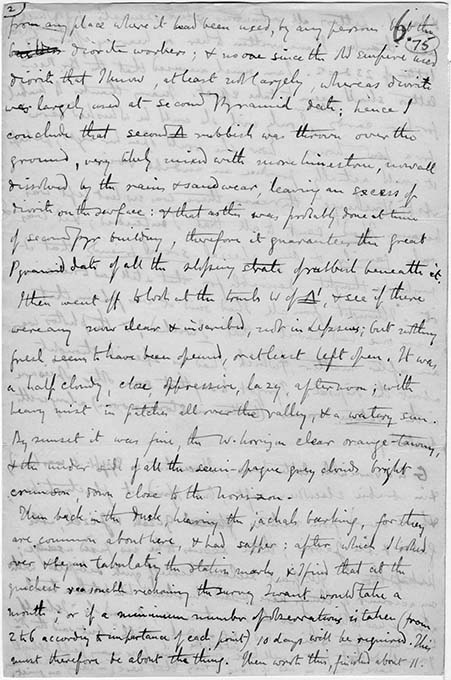 2)
6.
75
from any place where it had been used, by any persons but the
diorite workers; & no one since the Old Empire used
diorite that I know, at least not largely, whereas diorite
was largely used at second Pyramid date; hence I
conclude that second Δ rubbish was thrown over the
ground, very likely mixed with more limestone, now all
dissolved by the rains & sand wear, leaving an excess of
diorite on the surface: & that as this was probably done at time
of second Pyr building, therefore it guarantees the great
Pyramid date of all the sloping strata of rubbish beneath it.
I then went off to look at the tombs W of Δ, & see if there
were any now clear & inscribed, not in Lepsius; but nothing
fresh seems to have been opened, or at least left open. It was
a half cloudy, close, oppressive, lazy, afternoon; with
heavy mist in patches all over the valley, & a watery sun.
By sunset it was fine, the W. horizon clear orange-tawny,
& the under side of all the semi-opaque grey clouds bright
crimson down close to the horizon.
Then back in the dusk, hearing the jackals barking, for they
are common about here, & had supper: after which I looked
over & began tabulating the station marks, & I find that at the
quickest reasonable reckoning the survey I want would take a
month; or if a minimum number of observations is taken (from
2 to 6 according to importance of each point) 10 days will be required. This
must therefore be about the thing. Then wrote this, finished about 11.